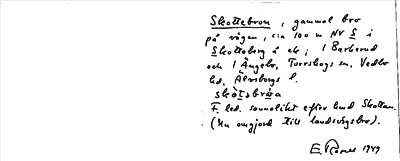 Skottebron, gammal bro
på vägen, c:a 100 m NV S i
Skottoberg å ek; 1 Barborud
och 1 Ängebo, Torrskogs sn, Vedbo
hd, Älvsborgs l.
skòt̀sbrǻa
F. led. sannolikt efter hmd Skottan.
(Nu omgjord till landsvägsbro).
E. 1949